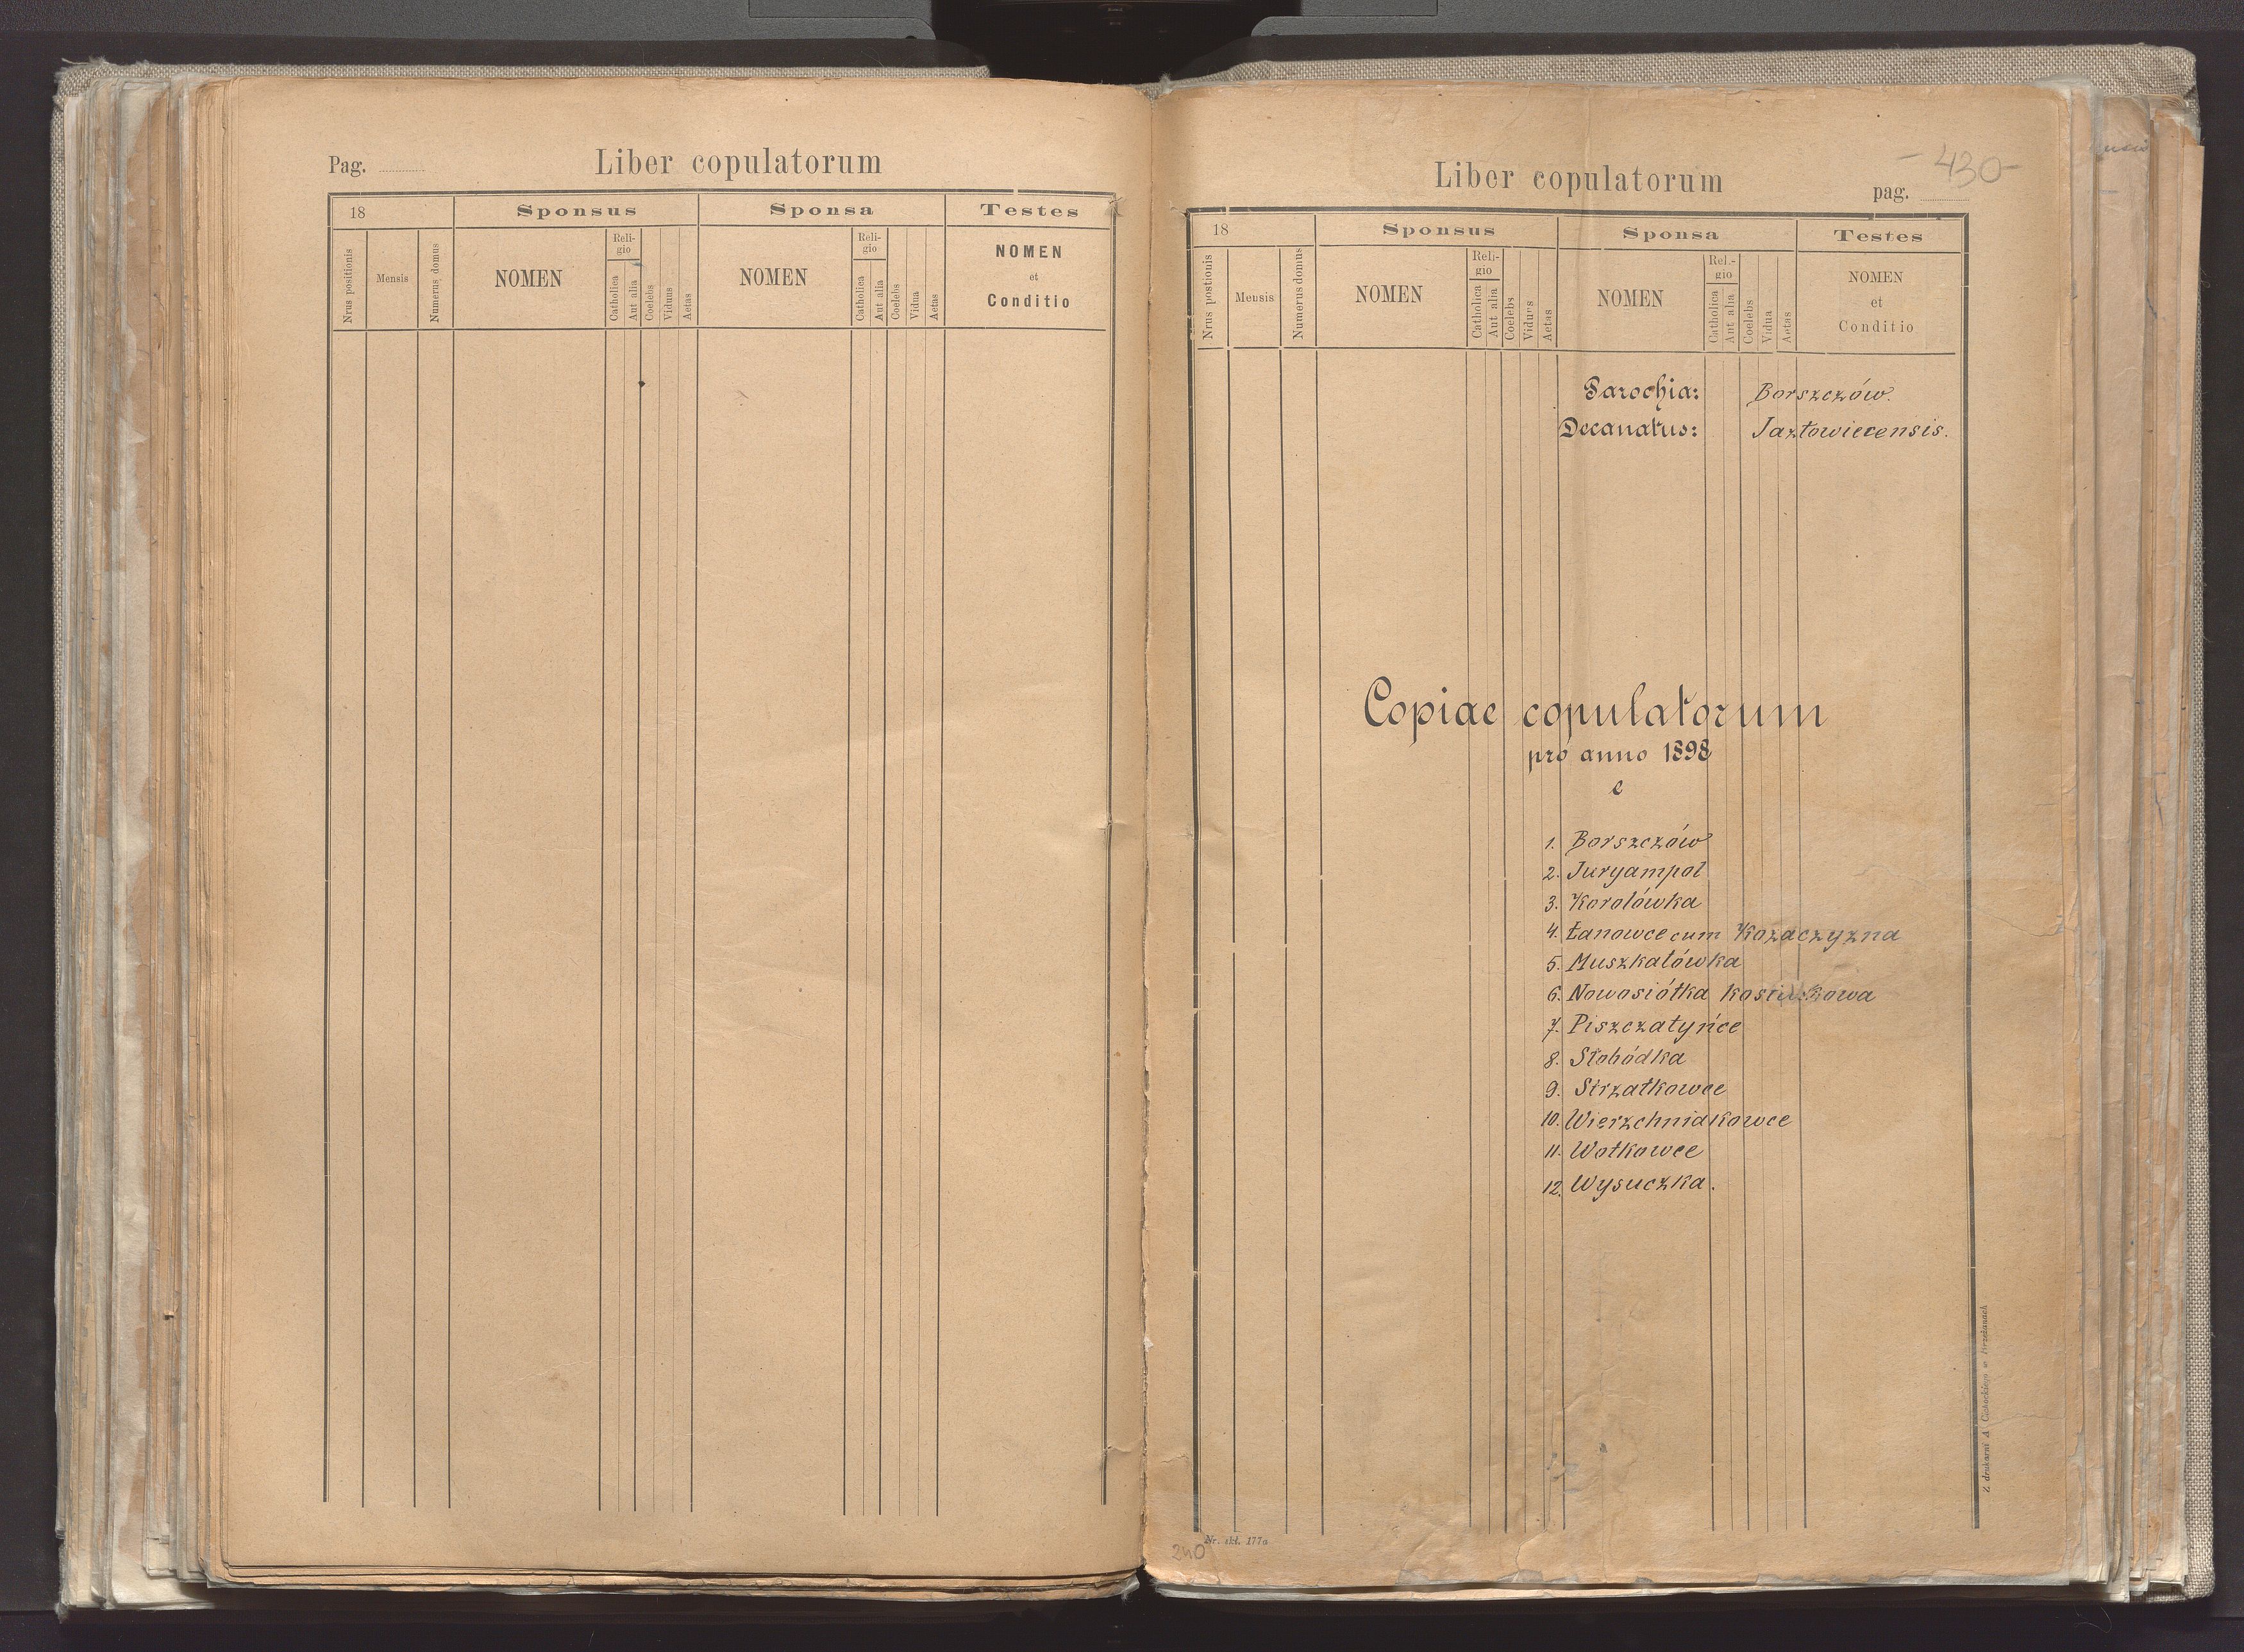 Pag. Liber copulatorum
18 Sponsus Sponsa Testes
Nrus positionis Mensis Numerus domus NOMEN Religio Catholica Aut alia Coelebs Viduus Aetas NOMEN Religio Catholica Aut alia Coelebs Vidua Aetas NOMEN et Conditio
Liber copulatorum pag. -430-
18 Sponsus Sponsa Testes
Nrus postionis Mensis Numerus domus NOMEN Religio Catholica Aut alia Coelebs Viduus Aetas NOMEN Religio Catholica Aut alia Coelebs Vidua Aetas NOMEN et Conditio
Parochia: Borszczów.
Decanatus: Jazłowiecensis.
Copiae copulatorum
pro anno 1898
e
1. Borszczów
2. Juryampol
3. Korolówka
4. Łanowce cum Kozaczyzna
5. Muszkatówka
6. Nowosiółka Kostiukowa
7. Piszczatyńce
8. Słobódka
9. Strzałkowce
10. Wierzchniakowce
11. Wołkowce
12. Wysuczka.
Z drukarni A. w Brzeżanach
Nr. skł. 177a
240